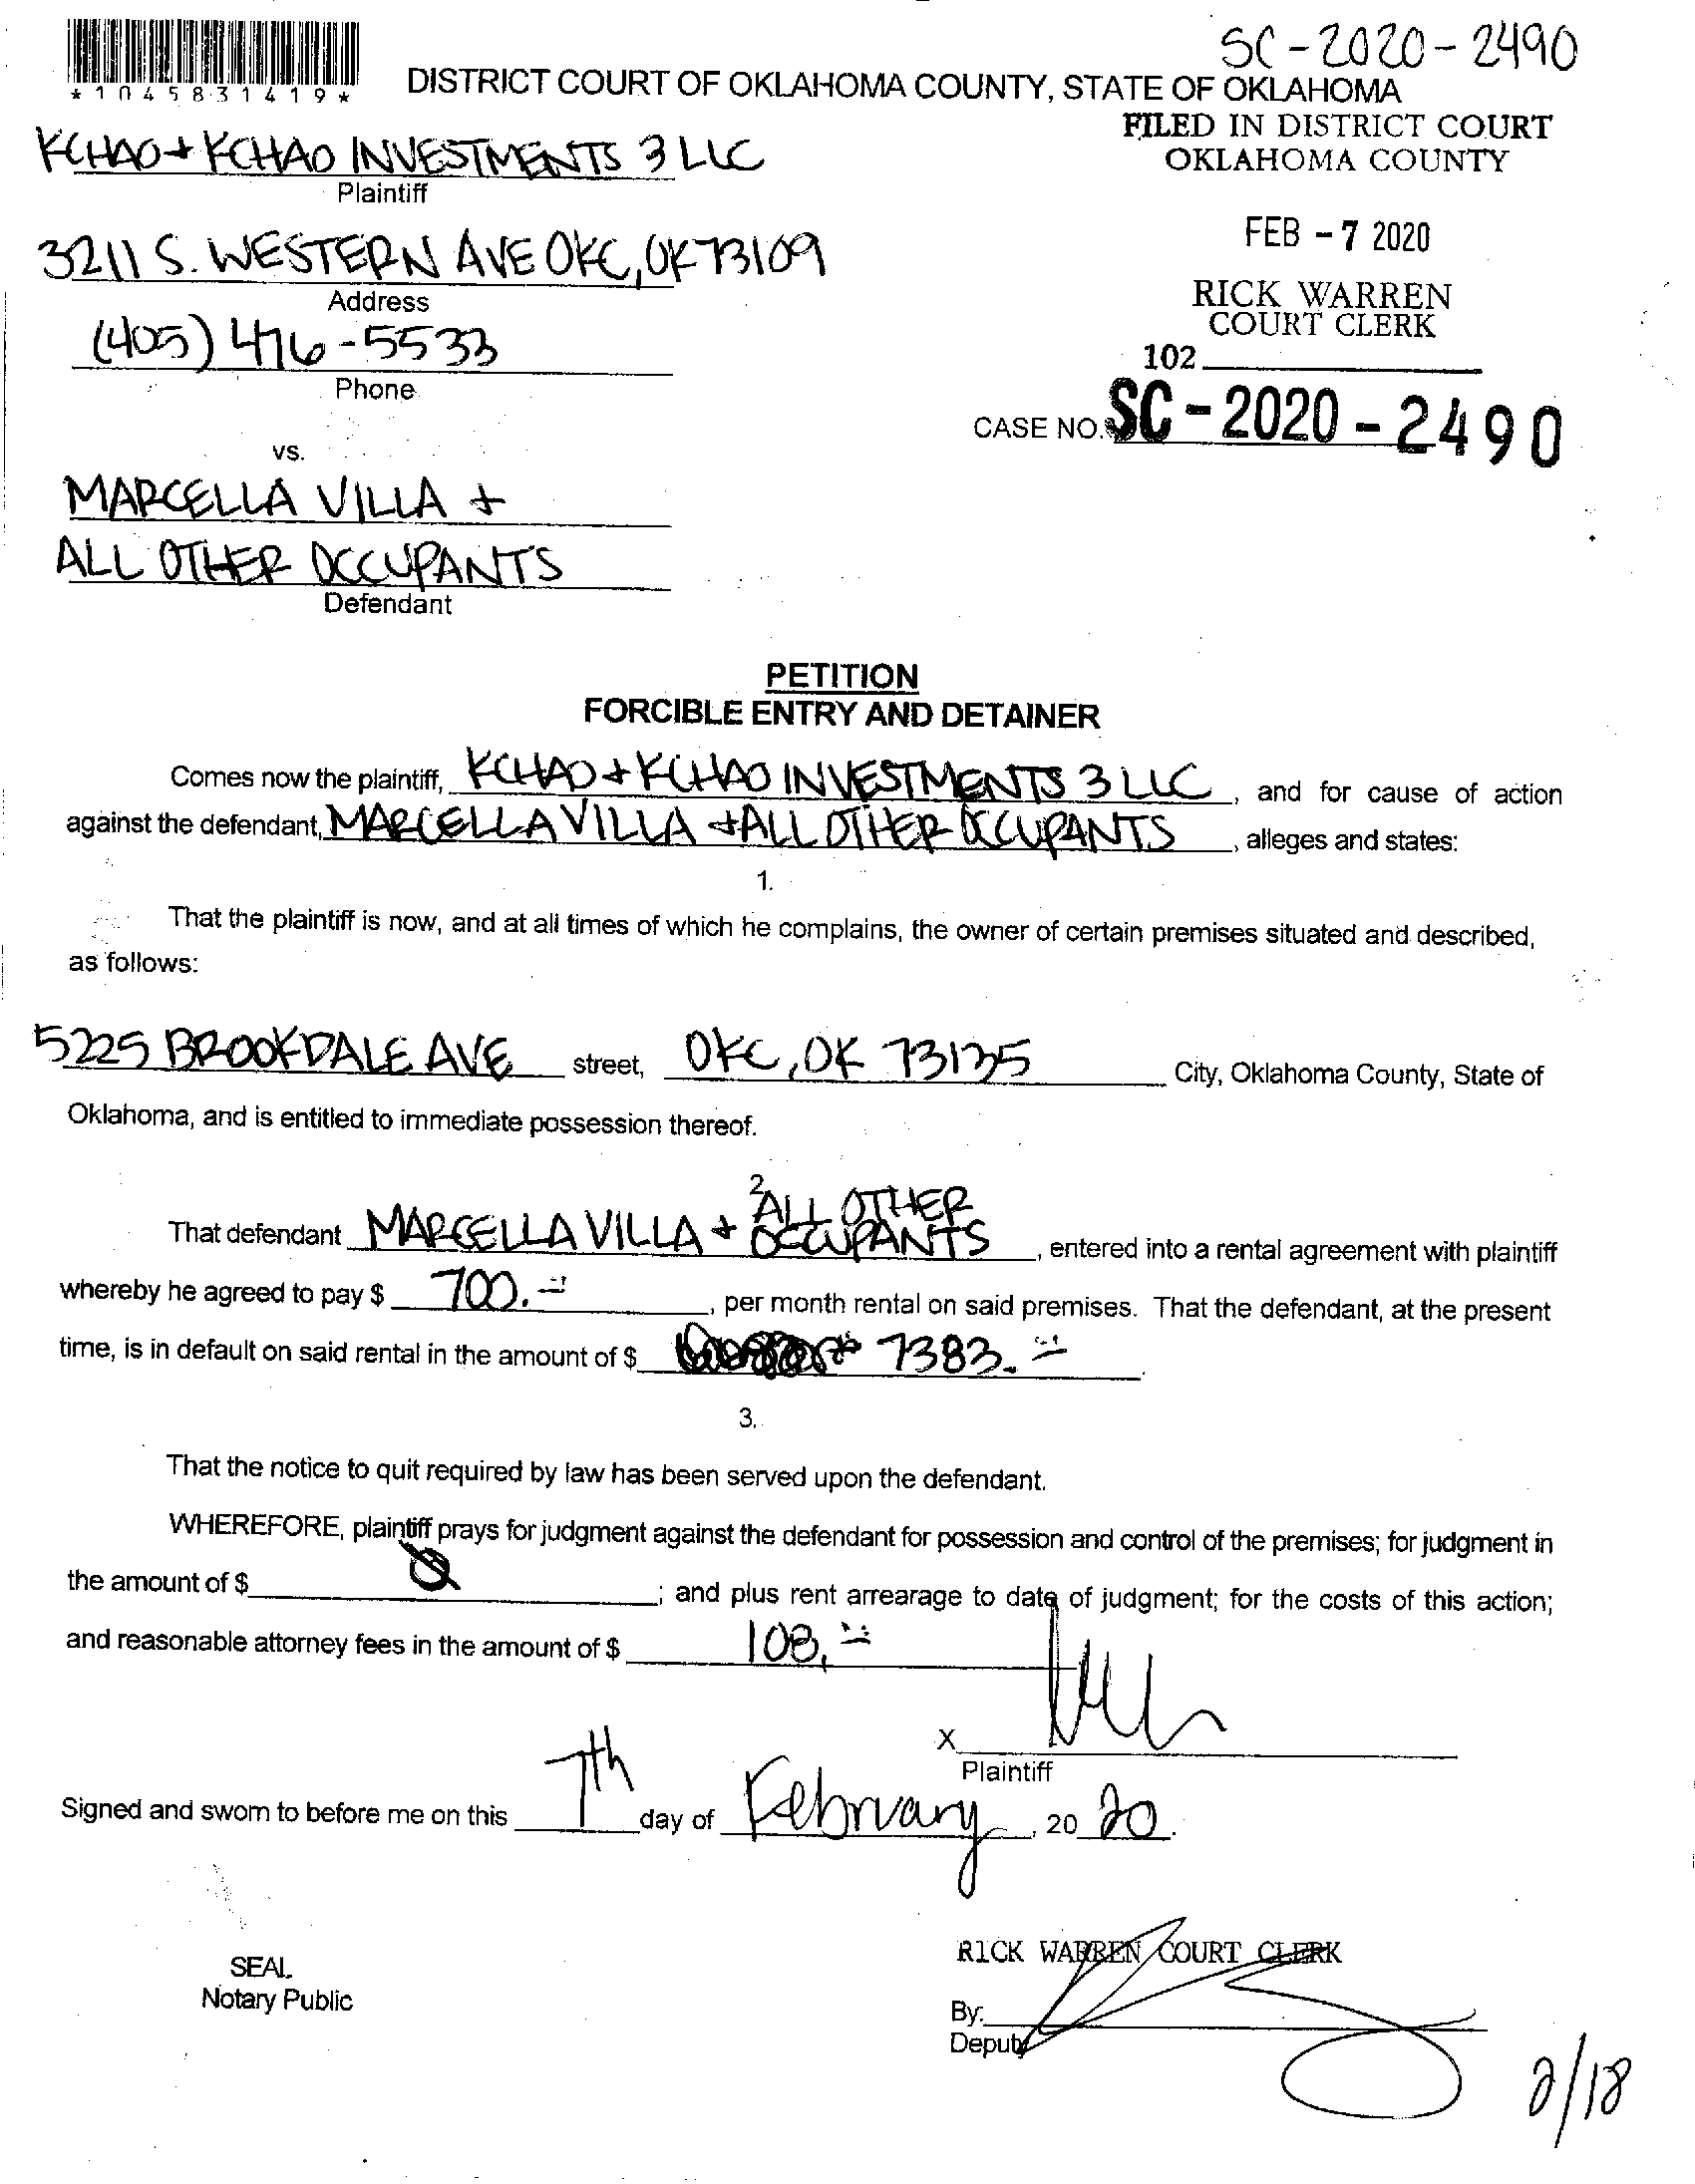 SC-2020-2490
*1045831419*
DISTRICT COURT OF OKLAHOMA COUNTY, STATE OF OKLAHOMA
FILED IN DISTRICT COURT
OKLAHOMA COUNTY
KCHAO + KCHAO INVESTMENTS 3 LLC
Plaintiff
FEB - 7 2020
3211 S. WESTERN AVE OKC, OK 73109
Address
RICK WARREN
COURT CLERK
(405) 476-5533
102
Phone
CASE NO. SC - 2020 - 2490
vs.
MARCELLA VILLA +
ALL OTHER OCCUPANTS
Defendant
PETITION
FORCIBLE ENTRY AND DETAINER
Comes now the plaintiff, KCHAO + KCHAO INVESTMENTS 3 LLC, and for cause of action
against the defendant, MARCELLA VILLA + ALL OTHER OCCUPANTS, alleges and states:
1.
That the plaintiff is now, and at all times of which he complains, the owner of certain premises situated and described,
as follows:
5225 BROOKDALE AVE street, OKC, OK 73135 City, Oklahoma County, State of
Oklahoma, and is entitled to immediate possession thereof.
2
That defendant MARCELLA VILLA + ALL OTHER OCCUPANTS, entered into a rental agreement with plaintiff
whereby he agreed to pay $ 700.-, per month rental on said premises. That the defendant, at the present
time, is in default on said rental in the amount of $ 7383.-.
3.
That the notice to quit required by law has been served upon the defendant.
WHEREFORE, plaintiff prays for judgment against the defendant for possession and control of the premises; for judgment in
the amount of $ Ø; and plus rent arrearage to date of judgment; for the costs of this action;
and reasonable attorney fees in the amount of $ 108.-
X
Plaintiff
Signed and sworn to before me on this 7th day of February, 20 20.
RICK WARREN COURT CLERK
SEAL
Notary Public
By:
Deputy
2/18